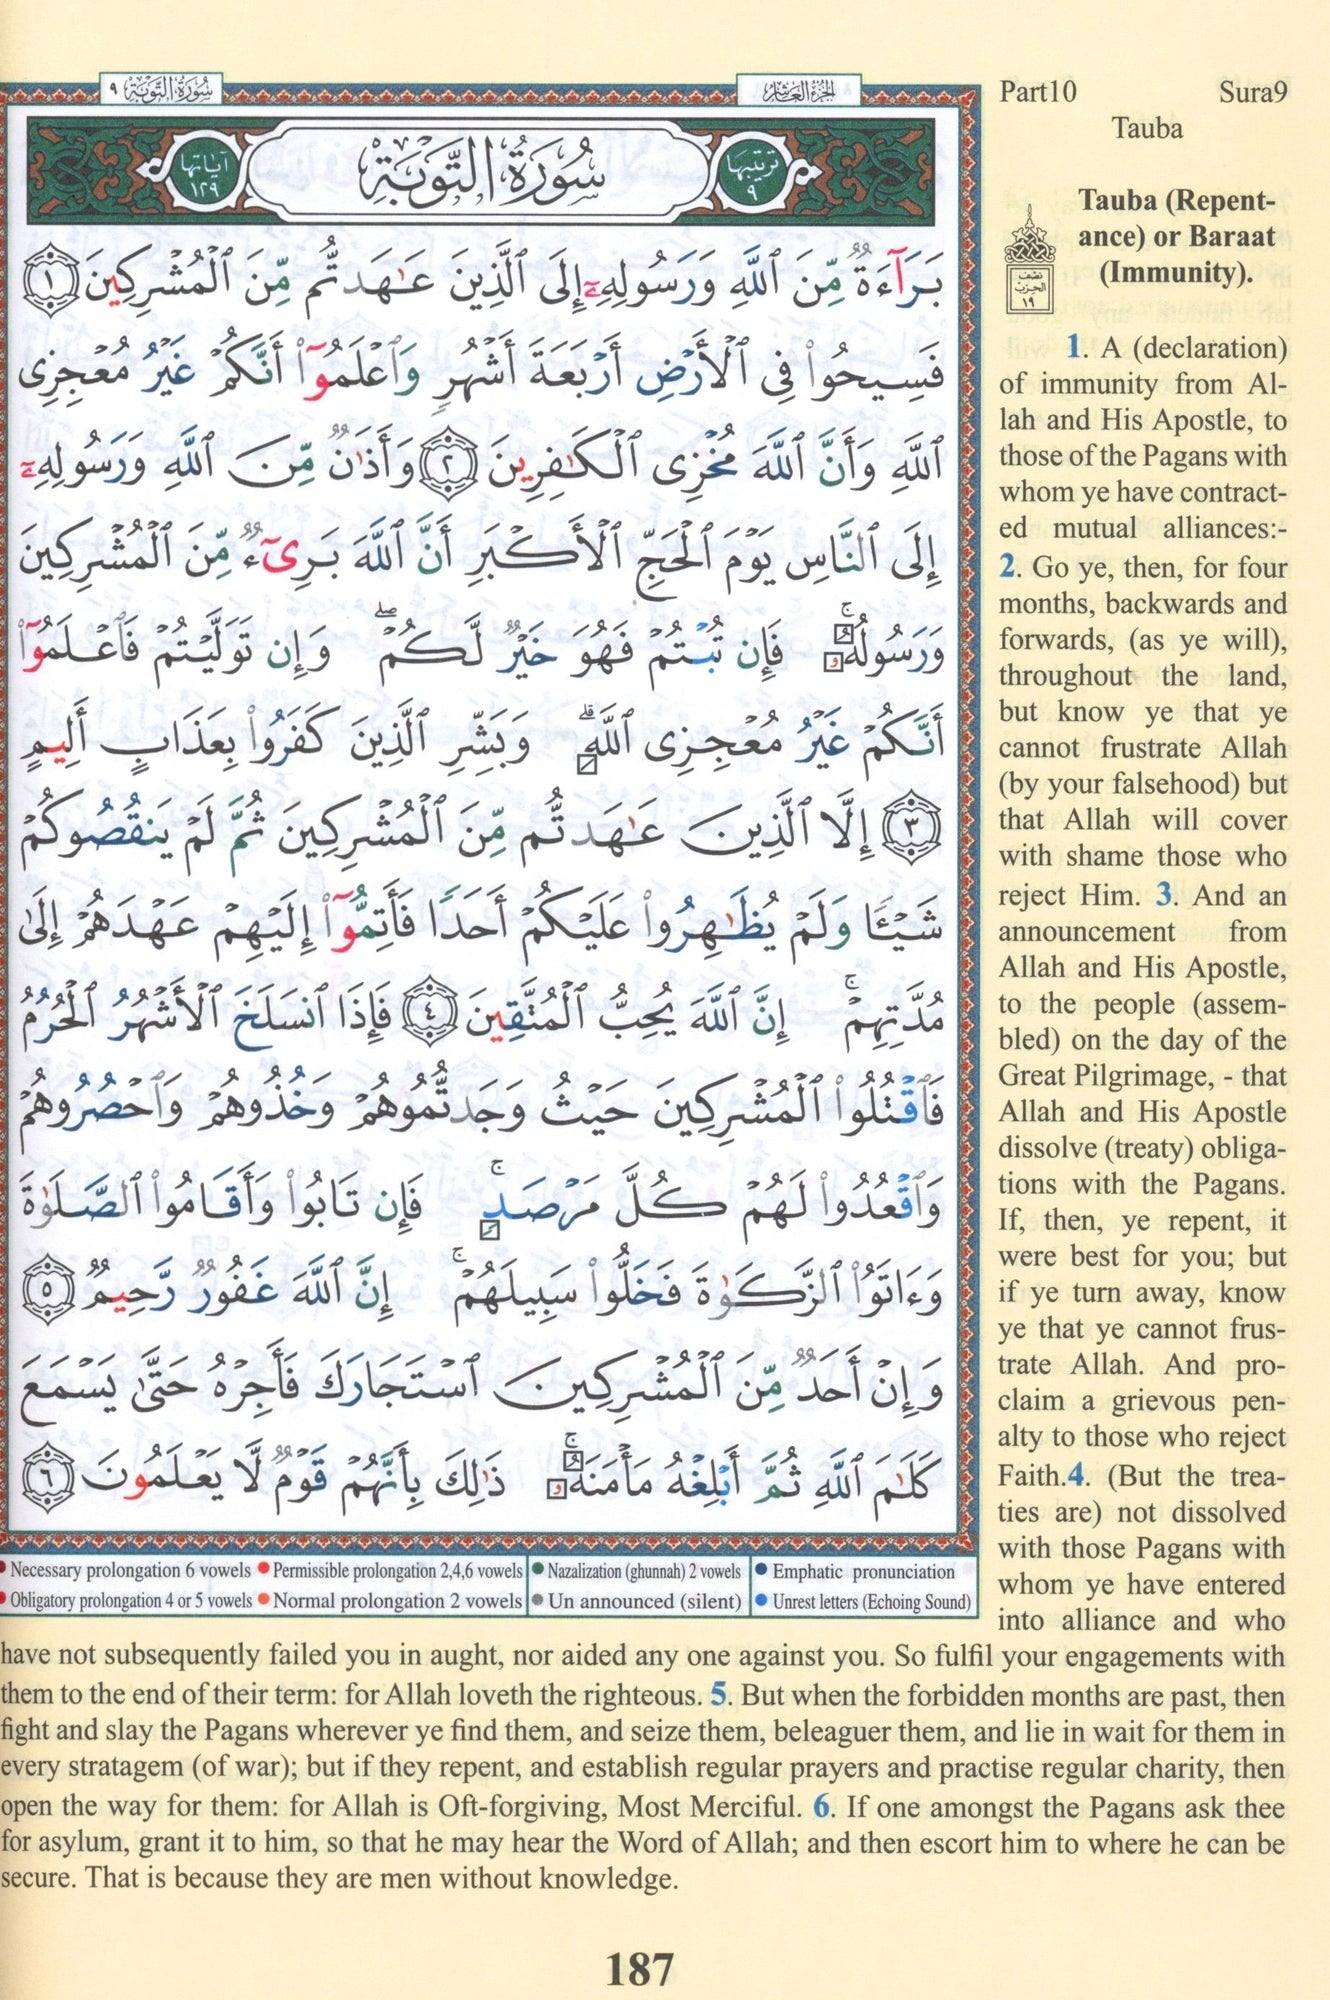 سُورَةُ التَّوْبَةِ ٩
الجُزْءُ العَاشِرُ
Part10 Sura9
Tauba
آيَاتُهَا ١٢٩
سُورَةُ التَّوْبَةِ
تَرْتِيبُهَا ٩
بَرَآءَةٌ مِّنَ ٱللَّهِ وَرَسُولِهِۦٓ إِلَى ٱلَّذِينَ عَـٰهَدتُّم مِّنَ ٱلْمُشْرِكِينَ ١
فَسِيحُوا۟ فِى ٱلْأَرْضِ أَرْبَعَةَ أَشْهُرٍ وَٱعْلَمُوٓا۟ أَنَّكُمْ غَيْرُ مُعْجِزِى
ٱللَّهِ وَأَنَّ ٱللَّهَ مُخْزِى ٱلْكَـٰفِرِينَ ٢ وَأَذَٰنٌ مِّنَ ٱللَّهِ وَرَسُولِهِۦٓ
إِلَى ٱلنَّاسِ يَوْمَ ٱلْحَجِّ ٱلْأَكْبَرِ أَنَّ ٱللَّهَ بَرِىٓءٌ مِّنَ ٱلْمُشْرِكِينَ
وَرَسُولُهُۥ ۚ فَإِن تُبْتُمْ فَهُوَ خَيْرٌ لَّكُمْ ۖ وَإِن تَوَلَّيْتُمْ فَٱعْلَمُوٓا۟
أَنَّكُمْ غَيْرُ مُعْجِزِى ٱللَّهِ ۗ وَبَشِّرِ ٱلَّذِينَ كَفَرُوا۟ بِعَذَابٍ أَلِيمٍ
٣ إِلَّا ٱلَّذِينَ عَـٰهَدتُّم مِّنَ ٱلْمُشْرِكِينَ ثُمَّ لَمْ يَنقُصُوكُمْ
شَيْـًٔا وَلَمْ يُظَـٰهِرُوا۟ عَلَيْكُمْ أَحَدًا فَأَتِمُّوٓا۟ إِلَيْهِمْ عَهْدَهُمْ إِلَىٰ
مُدَّتِهِمْ ۚ إِنَّ ٱللَّهَ يُحِبُّ ٱلْمُتَّقِينَ ٤ فَإِذَا ٱنسَلَخَ ٱلْأَشْهُرُ ٱلْحُرُمُ
فَٱقْتُلُوا۟ ٱلْمُشْرِكِينَ حَيْثُ وَجَدتُّمُوهُمْ وَخُذُوهُمْ وَٱحْصُرُوهُمْ
وَٱقْعُدُوا۟ لَهُمْ كُلَّ مَرْصَدٍ ۚ فَإِن تَابُوا۟ وَأَقَامُوا۟ ٱلصَّلَوٰةَ
وَءَاتَوُا۟ ٱلزَّكَوٰةَ فَخَلُّوا۟ سَبِيلَهُمْ ۚ إِنَّ ٱللَّهَ غَفُورٌ رَّحِيمٌ ٥
وَإِنْ أَحَدٌ مِّنَ ٱلْمُشْرِكِينَ ٱسْتَجَارَكَ فَأَجِرْهُ حَتَّىٰ يَسْمَعَ
كَلَـٰمَ ٱللَّهِ ثُمَّ أَبْلِغْهُ مَأْمَنَهُۥ ۚ ذَٰلِكَ بِأَنَّهُمْ قَوْمٌ لَّا يَعْلَمُونَ ٦
Necessary prolongation 6 vowels Permissible prolongation 2,4,6 vowels Nazalization (ghunnah) 2 vowels Emphatic pronunciation
Obligatory prolongation 4 or 5 vowels Normal prolongation 2 vowels Un announced (silent) Unrest letters (Echoing Sound)
نصف
الحزب
١٩
Tauba (Repent-
ance) or Baraat
(Immunity).
1. A (declaration)
of immunity from Al-
lah and His Apostle, to
those of the Pagans with
whom ye have contract-
ed mutual alliances:-
2. Go ye, then, for four
months, backwards and
forwards, (as ye will),
throughout the land,
but know ye that ye
cannot frustrate Allah
(by your falsehood) but
that Allah will cover
with shame those who
reject Him. 3. And an
announcement from
Allah and His Apostle,
to the people (assem-
bled) on the day of the
Great Pilgrimage, - that
Allah and His Apostle
dissolve (treaty) obliga-
tions with the Pagans.
If, then, ye repent, it
were best for you; but
if ye turn away, know
ye that ye cannot frus-
trate Allah. And pro-
claim a grievous pen-
alty to those who reject
Faith.4. (But the trea-
ties are) not dissolved
with those Pagans with
whom ye have entered
into alliance and who
have not subsequently failed you in aught, nor aided any one against you. So fulfil your engagements with
them to the end of their term: for Allah loveth the righteous. 5. But when the forbidden months are past, then
fight and slay the Pagans wherever ye find them, and seize them, beleaguer them, and lie in wait for them in
every stratagem (of war); but if they repent, and establish regular prayers and practise regular charity, then
open the way for them: for Allah is Oft-forgiving, Most Merciful. 6. If one amongst the Pagans ask thee
for asylum, grant it to him, so that he may hear the Word of Allah; and then escort him to where he can be
secure. That is because they are men without knowledge.
187